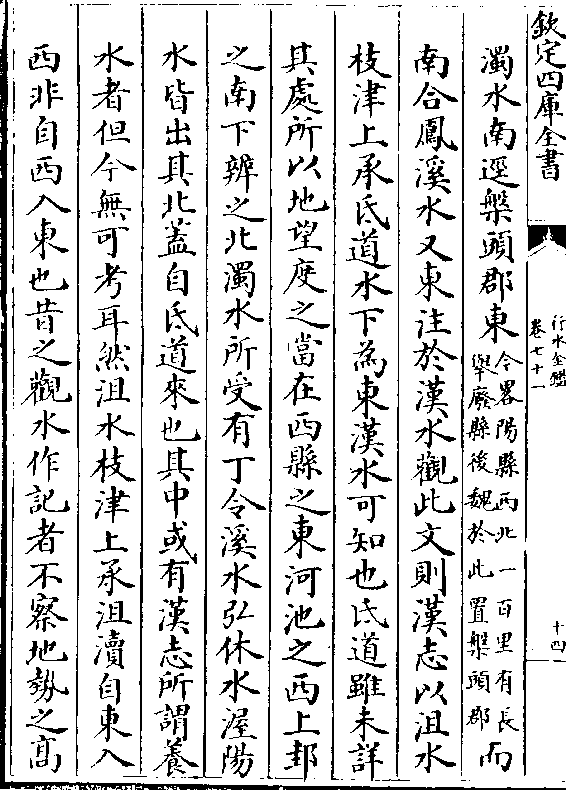 欽定四庫全書
行水金鑑
卷七十一
十四
濁水南逕槃頭郡東今畧陽縣西北一百里有長舉廢縣後魏於此置槃頭郡而
南合鳳溪水又東注於漢水觀此文則漢志以沮水
枝津上承氐道水下為東漢水可知也氐道雖未詳
其處所以地望度之當在西縣之東河池之西上邽
之南下辨之北濁水所受有丁令溪水弘休水渥陽
水皆出其北蓋自氐道來也其中或有漢志所謂養
水者但今無可考耳然沮水枝津上承沮瀆自東入
西非自西入東也昔之觀水作記者不察地勢之髙